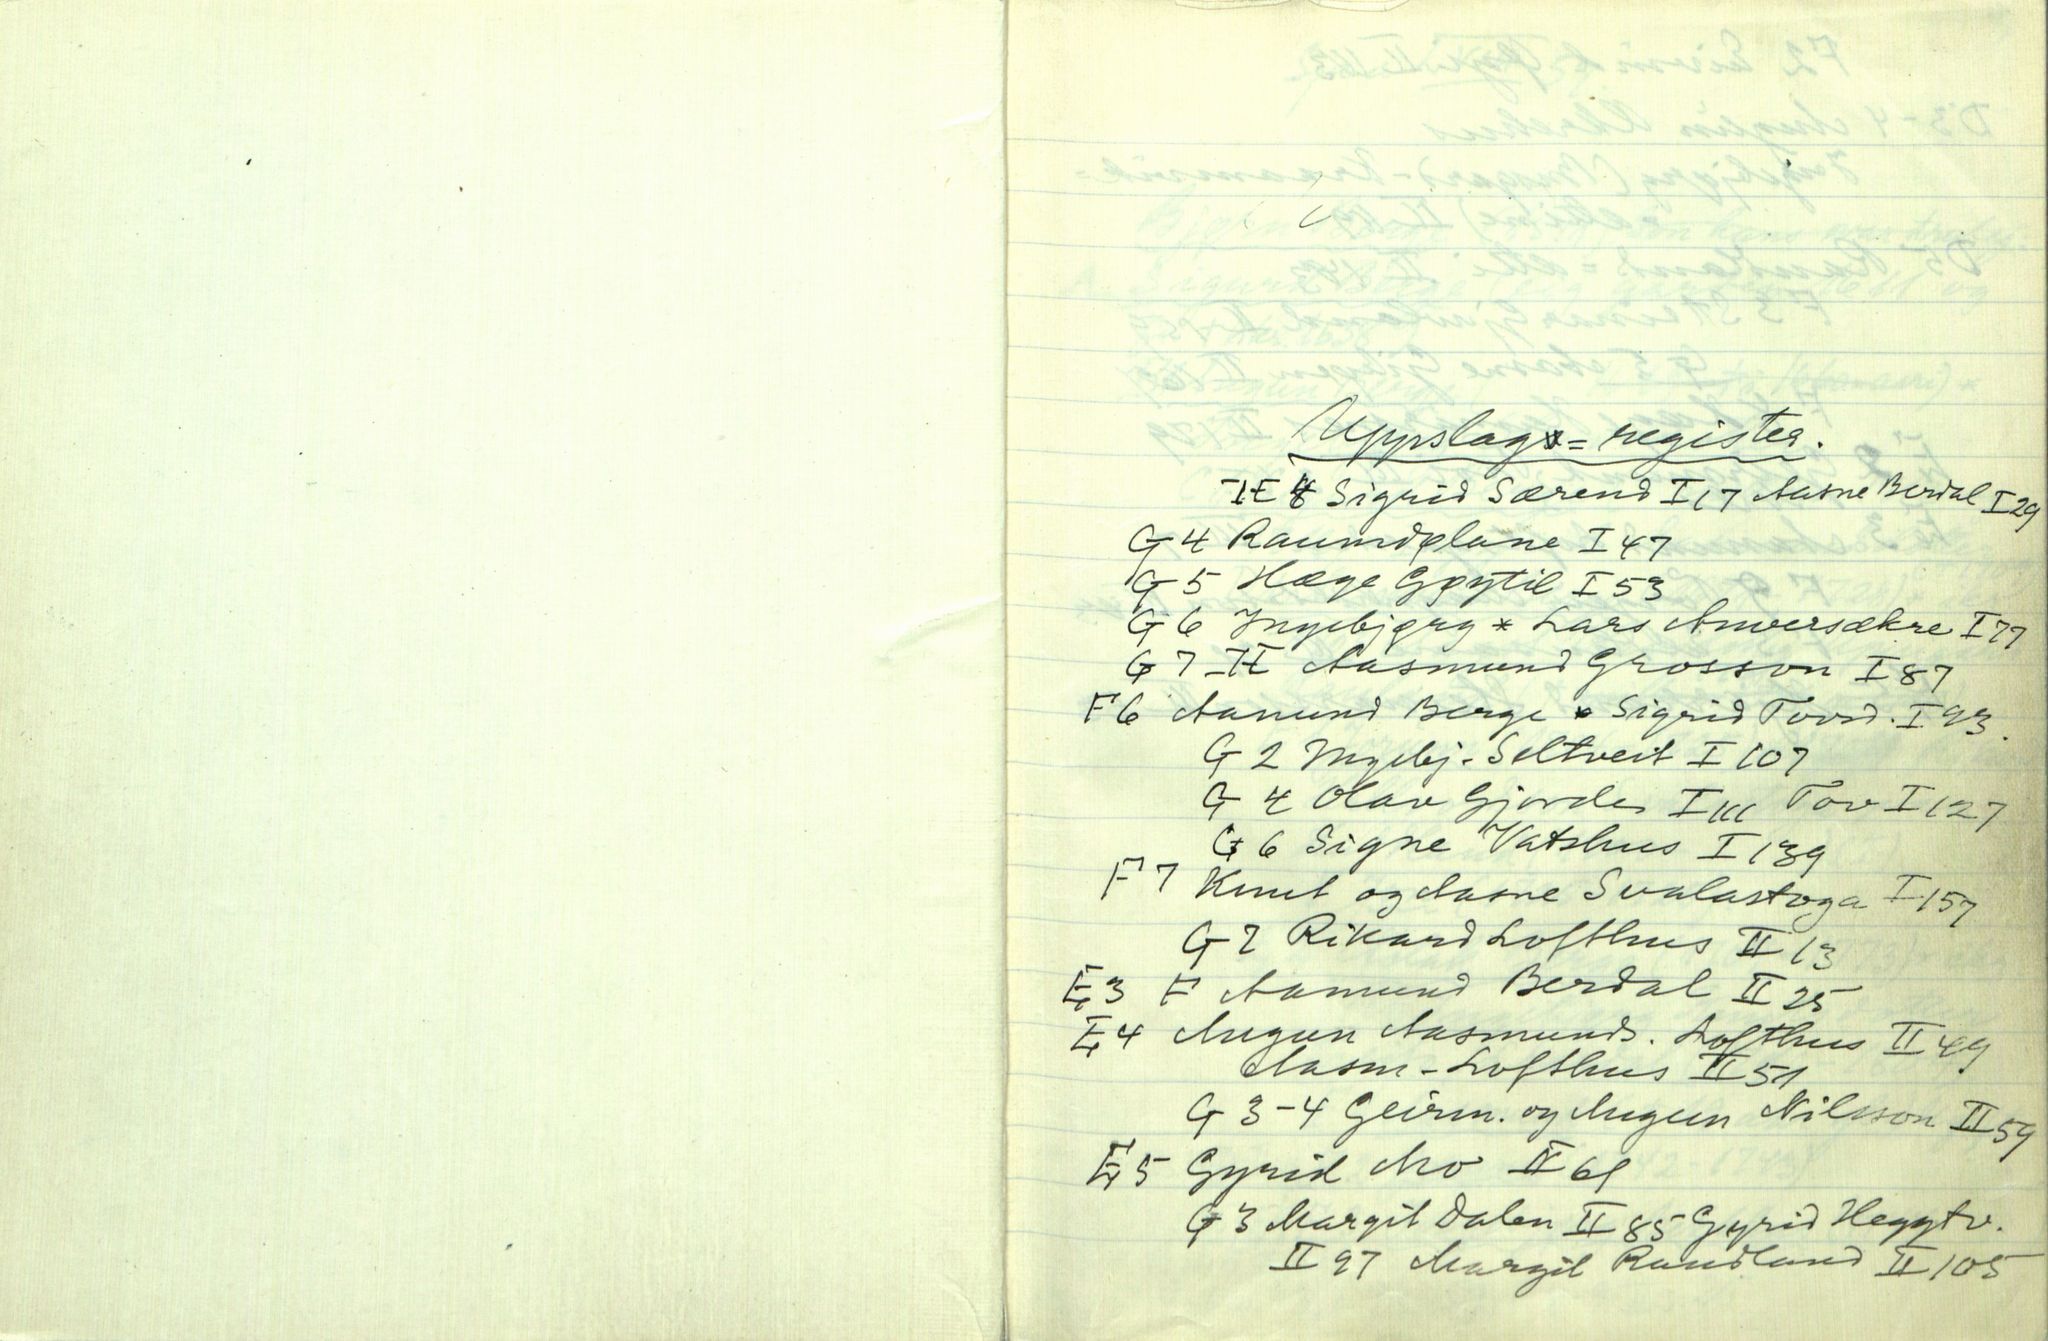 Uppslags=register.
H 8 Sigrid Særend I 17 Aasne Berdal I 29
G 4 Raumdølane I 47
G 5 Hæge Gøytil I 53
G 6 Ingebjørg * Lars Anversækre I 77
G 7 H Aasmund Grosson I 87
F 6 Aamund Berge * Sigrid Tovsd. I 93.
G 2 Ingebj. Seltveit I 107
G 4 Olav Gjordes I 111 Tov I 127
G 6 Signe Vatshus I 139
F 7 Knut og Aasne Svalastoga I 157
G 2 Rikard Lofthus II 13
E 3 F Aamund Berdal II 25
E 4 Augun Aasmunds. Lofthus II 49
Aasm. Lofthus II 51
G 3-4 Geirm. og Augun Nilsson II 59
E 5 Gyrid Mo II 61
G 3 Margit Dalen II 85 Gyrid Heggtv.
II 97 Margit Raudland II 105